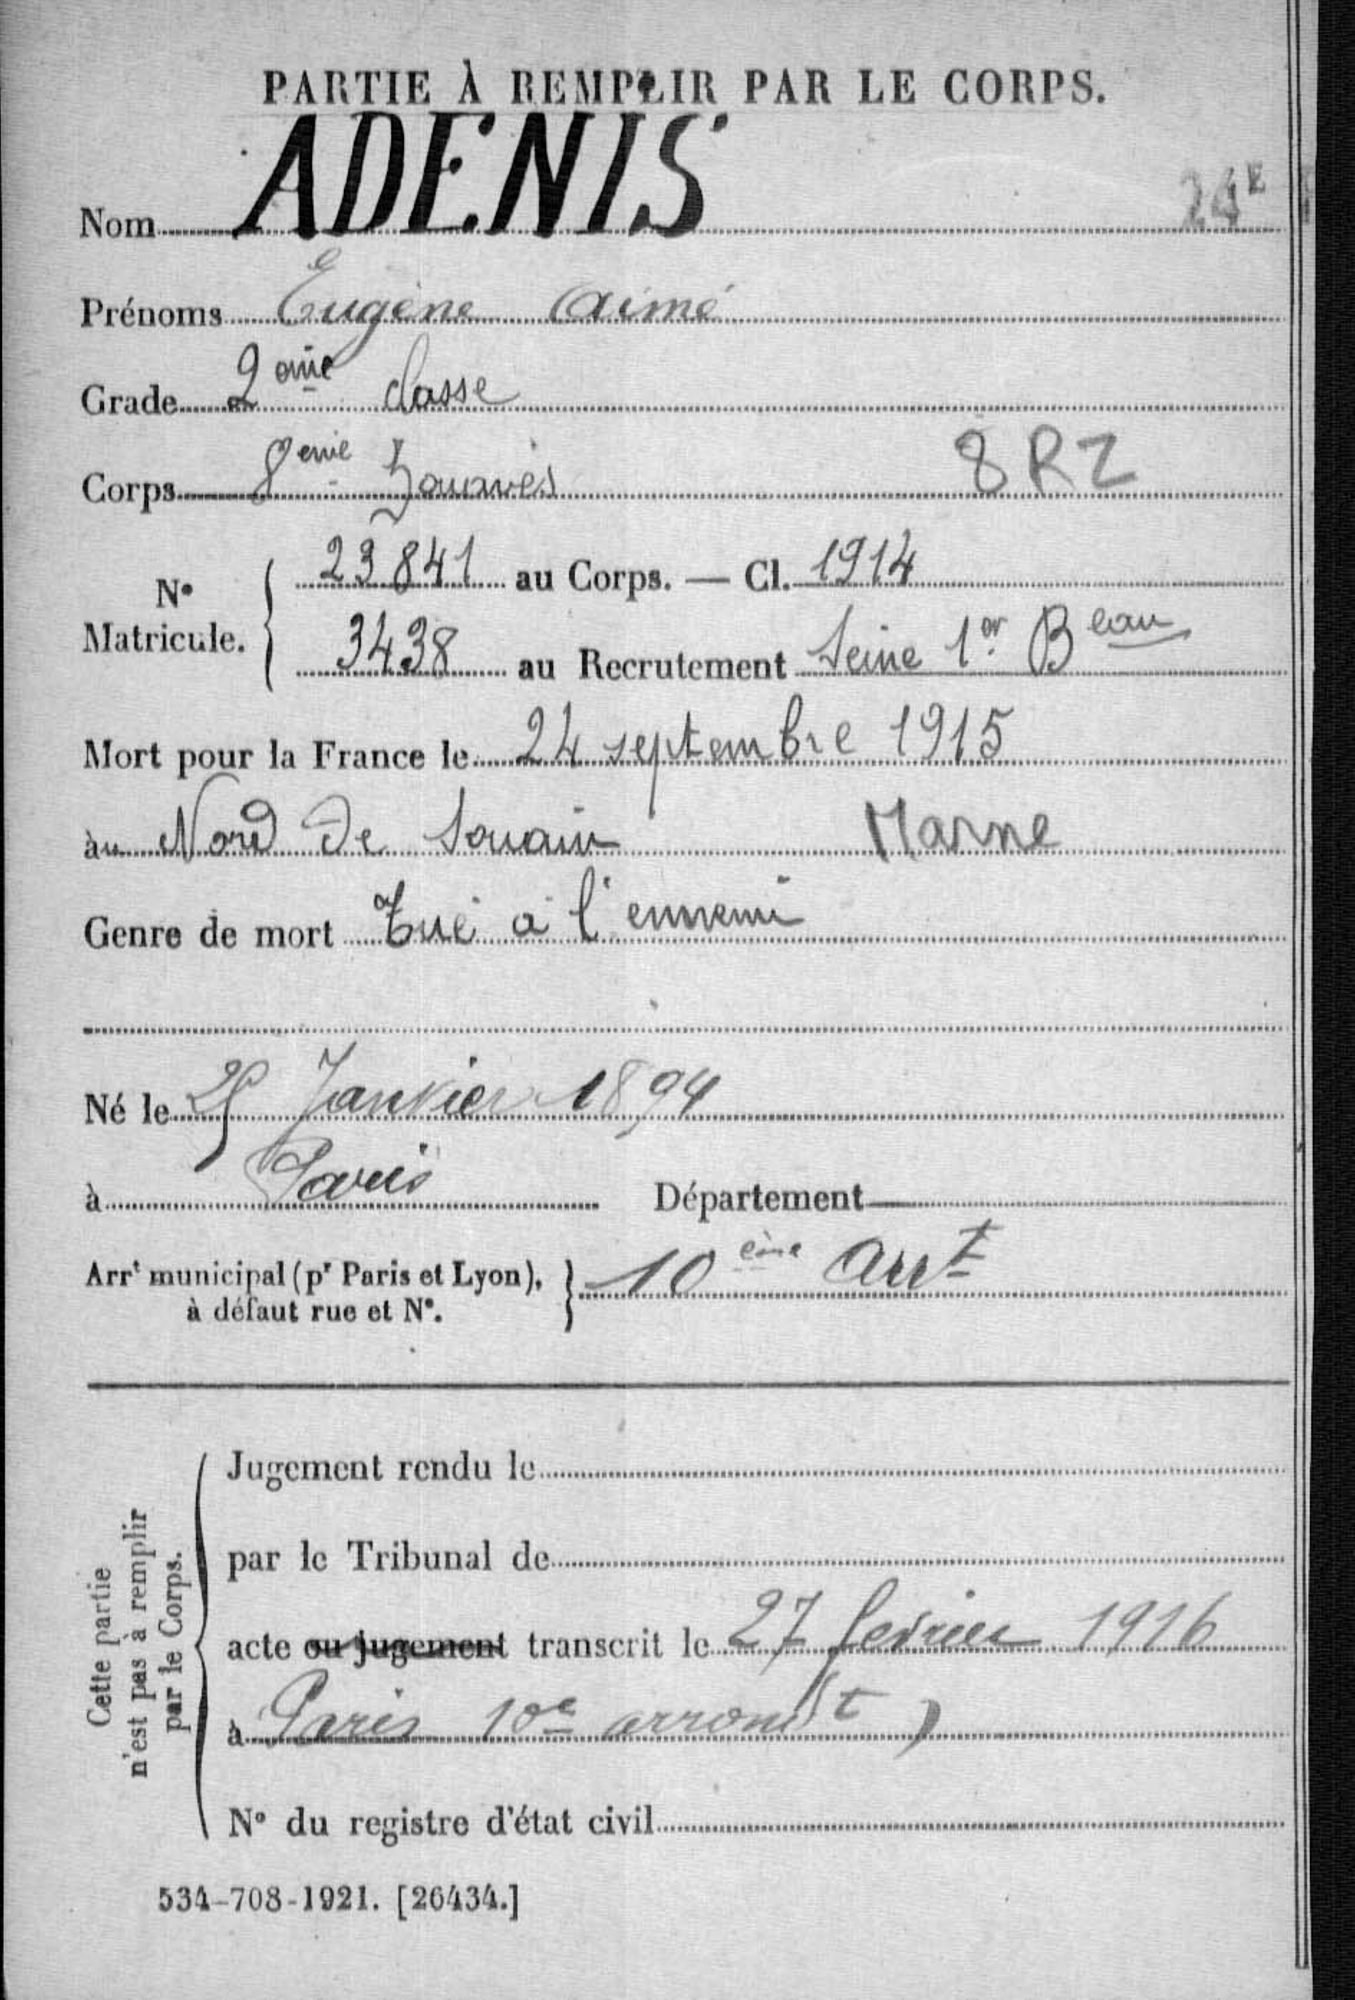 PARTIE À REMPLIR PAR LE CORPS.
Nom ADENIS
Prénoms Eugène Aimé
Grade 2ème classe
Corps 8eme Zouaves 8 RZ
N° Matricule. 23841 au Corps. — Cl. 1914
3438 au Recrutement Seine 1er Beau
Mort pour la France le 24 septembre 1915
au Nord de Souain Marne
Genre de mort Tué à l'ennemi
Né le Janvier 1894
à Paris Département
Arrt municipal (pr Paris et Lyon), 10ème Arrt
à défaut rue et N°.
Cette partie
n'est pas à remplir
par le Corps.
Jugement rendu le
par le Tribunal de
acte ou jugement transcrit le 27 fevrier 1916
à Paris 10e arrondt)
N° du registre d'état civil
534-708-1921. [26434.]